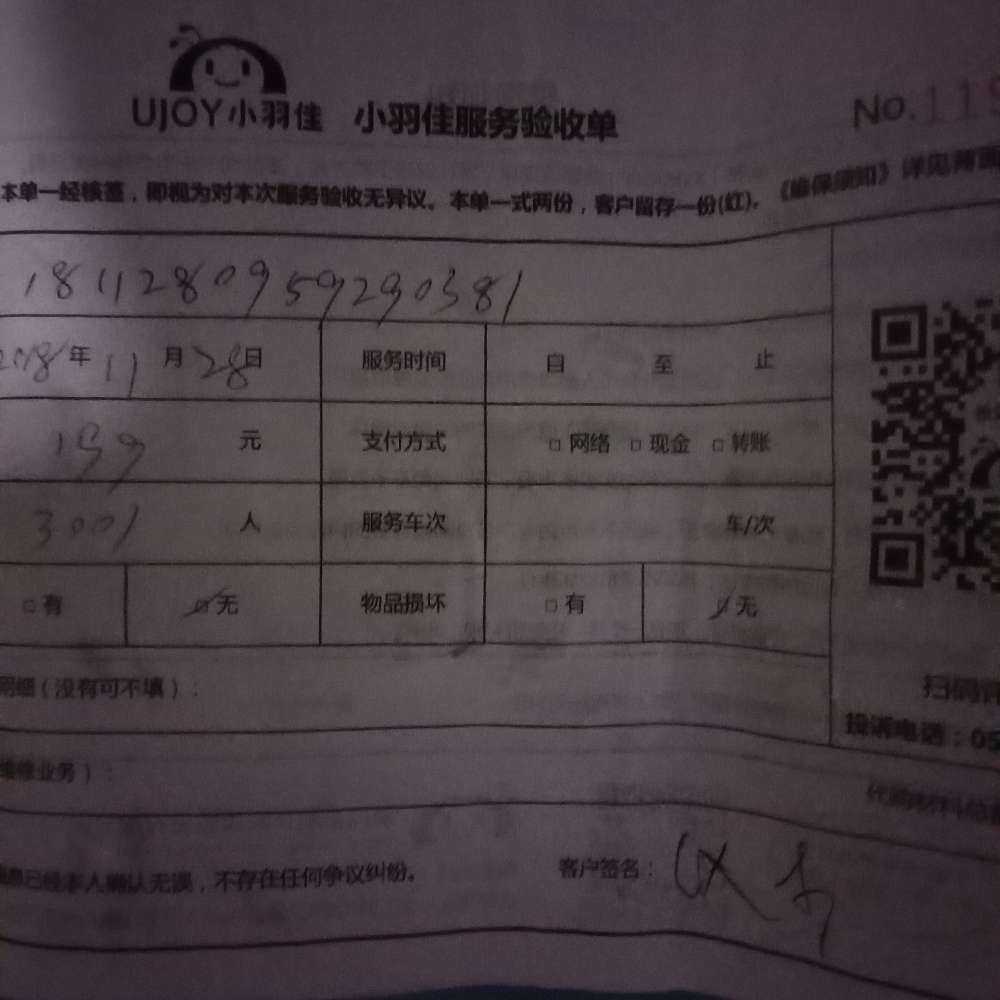 UJOY小羽佳 小羽佳服务验收单 No.119
本单一经核签，即视为对本次服务验收无异议。本单一式两份，客户留存一份(红)。《维保须知》详见背面
1811280959290381
2018年11月28日 服务时间 自 至 止
159元 支付方式 □ 网络 □ 现金 □ 转账
3001人 服务车次 车/次
□ 有 □ 无 物品损坏 □ 有 □ 无
明细（没有可不填）：
扫码
投诉电话：05
维修业务）：
代购材料总
已经本人确认无误，不存在任何争议纠纷。 客户签名：